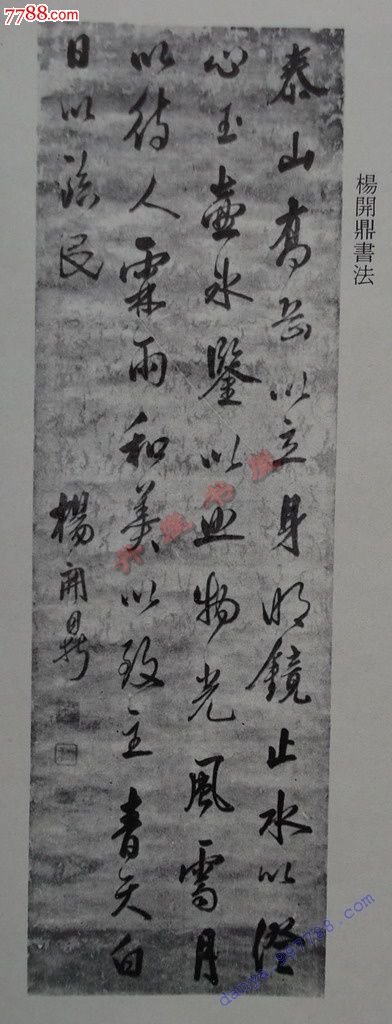 7788.com
楊開鼎書法
泰山喬岳以立身明鏡止水以澄
心玉壺冰鑒以照物光風霽月
以待人霖雨和羹以致主青天白
日以臨民
楊開鼎
danya.997788.com